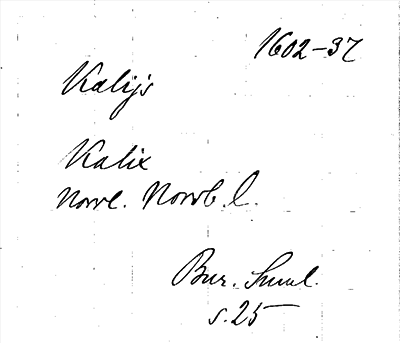 1602-37
Kalijs
Kalix
Norrl. Norrb. l.
Bur. Suml.
s. 25